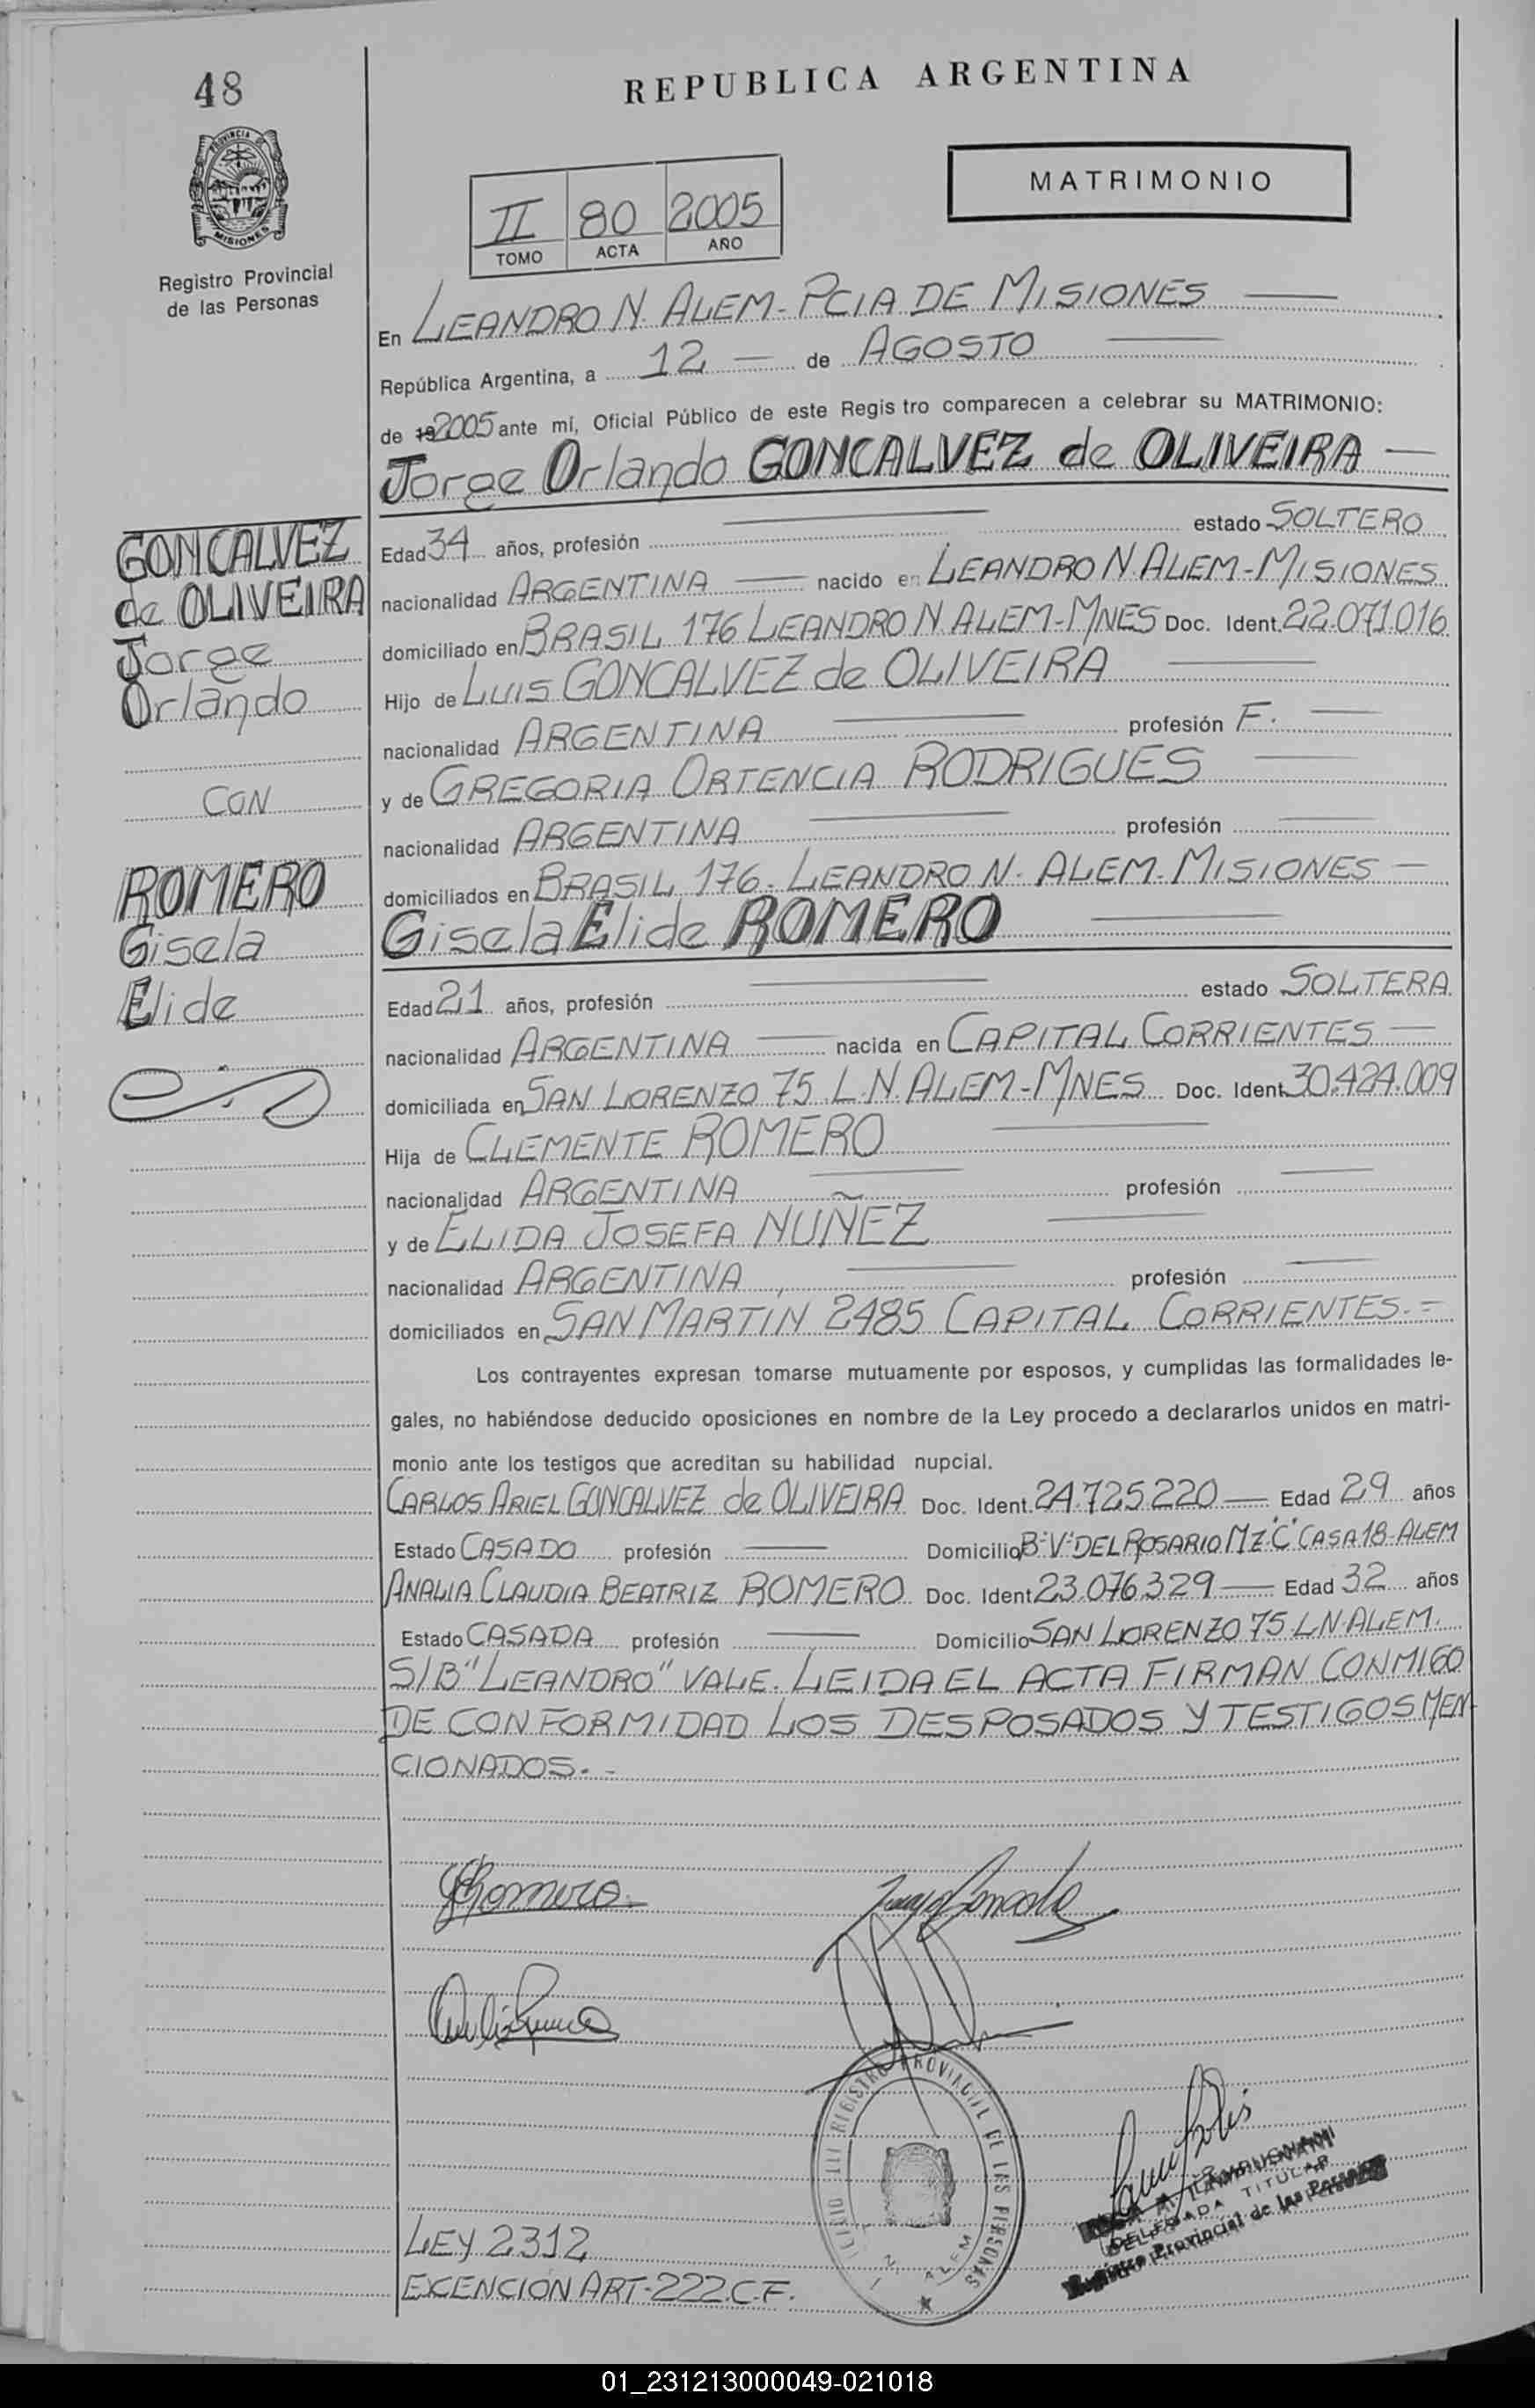 48
REPUBLICA ARGENTINA
PROVINCIA DE
MISIONES
MATRIMONIO
II 80 2005
TOMO ACTA AÑO
Registro Provincial
de las Personas
En LEANDRO N. ALEM - PCIA DE MISIONES
República Argentina, a 12 — de AGOSTO
de 19 2005 ante mí, Oficial Público de este Regis tro comparecen a celebrar su MATRIMONIO:
Jorge Orlando GONCALVEZ de OLIVEIRA —
GONCALVEZ
de OLIVEIRA
Jorge
Orlando
CON
ROMERO
Gisela
Elide
Edad 34 años, profesión — estado SOLTERO
nacionalidad ARGENTINA — nacido en LEANDRO N. ALEM - MISIONES
domiciliado en BRASIL 176 LEANDRO N ALEM - MNES Doc. Ident. 22.071.016
Hijo de LUIS GONCALVEZ de OLIVEIRA —
nacionalidad ARGENTINA — profesión F. —
y de GREGORIA ORTENCIA RODRIGUES —
nacionalidad ARGENTINA — profesión —
domiciliados en BRASIL 176. LEANDRO N. ALEM - MISIONES —
Gisela Elide ROMERO —
Edad 21 años, profesión — estado SOLTERA
nacionalidad ARGENTINA — nacida en CAPITAL CORRIENTES —
domiciliada en SAN LORENZO 75 L.N. ALEM - MNES Doc. Ident. 30.424.009
Hija de CLEMENTE ROMERO —
nacionalidad ARGENTINA — profesión —
y de ELIDA JOSEFA NUÑEZ —
nacionalidad ARGENTINA — profesión —
domiciliados en SAN MARTIN 2485 CAPITAL CORRIENTES.-
Los contrayentes expresan tomarse mutuamente por esposos, y cumplidas las formalidades le-
gales, no habiéndose deducido oposiciones en nombre de la Ley procedo a declararlos unidos en matri-
monio ante los testigos que acreditan su habilidad nupcial.
CARLOS ARIEL GONCALVEZ de OLIVEIRA Doc. Ident. 24.725.220 — Edad 29 años
Estado CASADO profesión — Domicilio Bº Vº DEL ROSARIO MZ "C" CASA 18 - ALEM
ANALIA CLAUDIA BEATRIZ ROMERO Doc. Ident 23.076.329 — Edad 32 años
Estado CASADA profesión — Domicilio SAN LORENZO 75 L N ALEM.
S/B "LEANDRO" VALE. LEIDA EL ACTA FIRMAN CONMIGO
DE CONFORMIDAD LOS DESPOSADOS Y TESTIGOS MEN-
CIONADOS.-
Romero
REGISTRO PROVINCIAL DE LAS PERSONAS
N. ALEM
DELEGADA TITULAR
Registro Provincial de las Personas
LEY 2312
EXENCION ART-222.C.F.
01_231213000049-021018